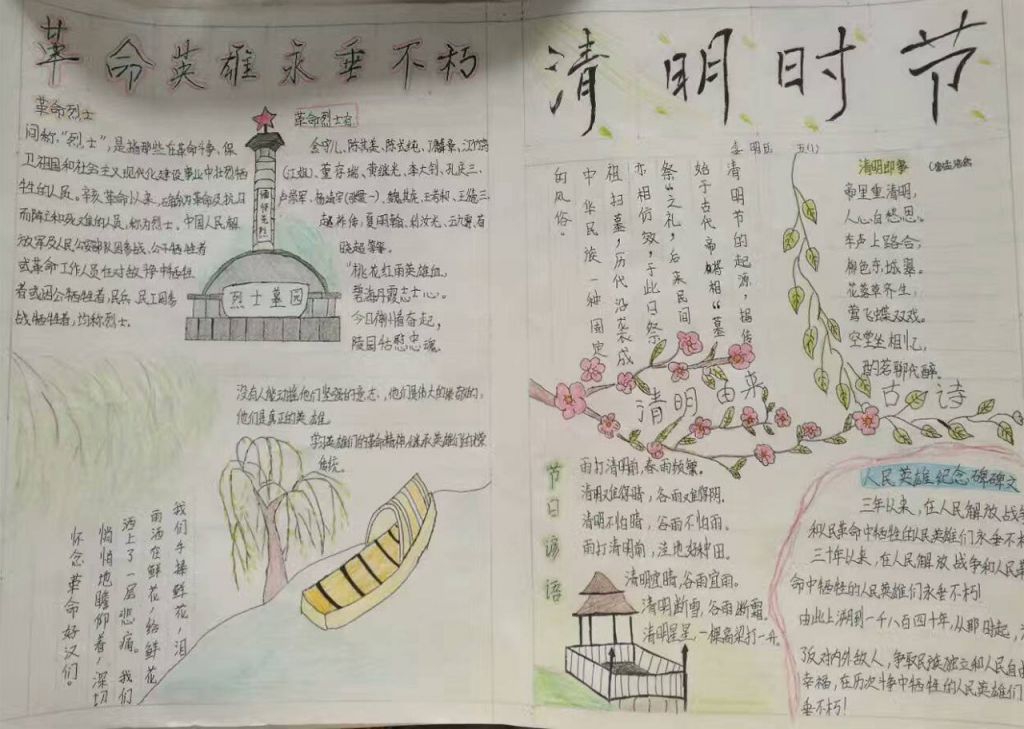 革命英雄永垂不朽
革命烈士
问称,"烈士",是指那些在革命斗争、保
卫祖国和社会主义现代化建设事业中壮烈牺
牲的人员。辛亥革命以来,
而阵亡和死难的人员,称为烈士。中国人民解
放军及人民公安部队因参战、公干牺牲者
或革命工作人员在对敌斗争中牺牲
者或因公牺牲者,民兵、民工因参
战牺牲者,均称烈士。
烈士墓园
革命烈士名
陈其美、陈长纯、
(江姐)、董存瑞、黄继光、李大钊、
赵祎伟、夏明翰、
晓超等等。
"桃花红雨英雄血,
碧海丹霞志士心。
今日神州看奋起,
陵园千古慰忠魂。
没有人能动摇他们坚强的意志,他们是伟大的崇敬的,
他们是真正的英雄。
学英雄们的革命精神,继承英雄们的光荣
传统。
我们手捧鲜花,泪
雨洒在鲜花,给鲜花
洒上了一层悲痛。我们
悄悄地瞻仰着,深切
怀念革命好汉们。
清明时节
李明辰 五(1)
清明节的起源,据传
始于古代帝王将相"墓
祭"之礼,后来民间
亦相仿效,于此日祭
祖扫墓,历代沿袭成
中华民族一种固定
的风俗。
清明由来
清明即事
帝里重清明,
人心自愁思。
车声上路合,
柳色东城翠。
花落草齐生,
莺飞蝶双戏。
空堂坐相忆,
酌茗聊代醉。
古诗
节日谚语
雨打清明前,春雨频繁。
清明难得晴,谷雨难得阴。
清明不怕晴,谷雨不怕雨。
雨打清明前,洼地好种田。
清明宜晴,谷雨宜雨。
清明断雪,谷雨断霜。
清明星星,一棵高粱打一升。
人民英雄纪念碑碑文
三年以来,在人民解放战争
和人民革命中牺牲的人民英雄们永垂不朽
三十年以来,在人民解放战争和人民革
命中牺牲的人民英雄们永垂不朽!
由此上溯到一千八百四十年,从那时起,
了反对内外敌人,争取民族独立和人民自由
幸福,在历次斗争中牺牲的人民英雄们
垂不朽!